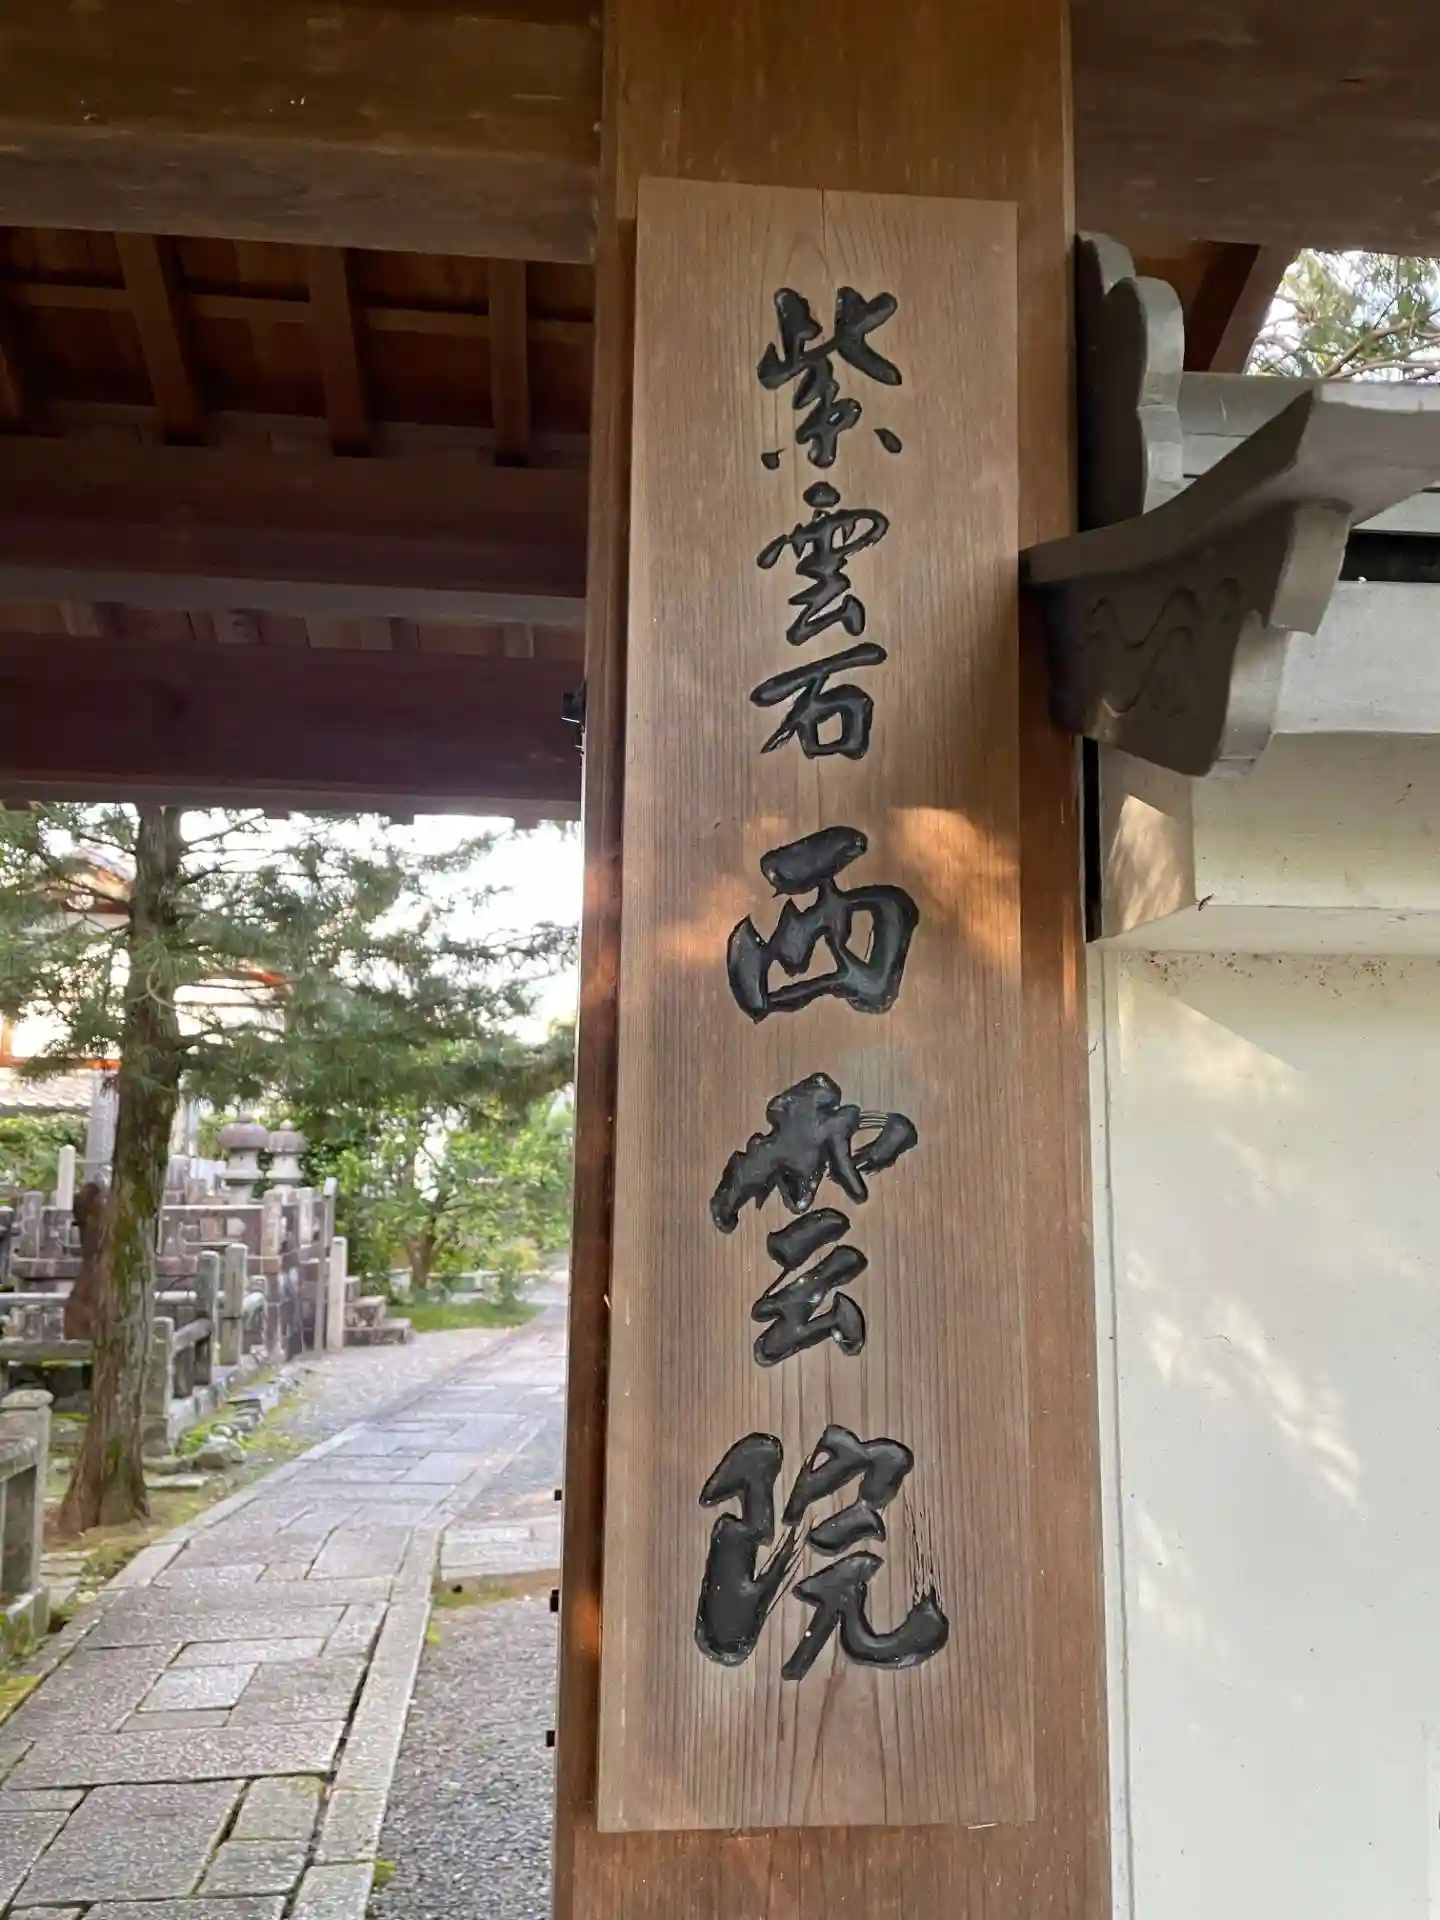 紫雲石西雲院